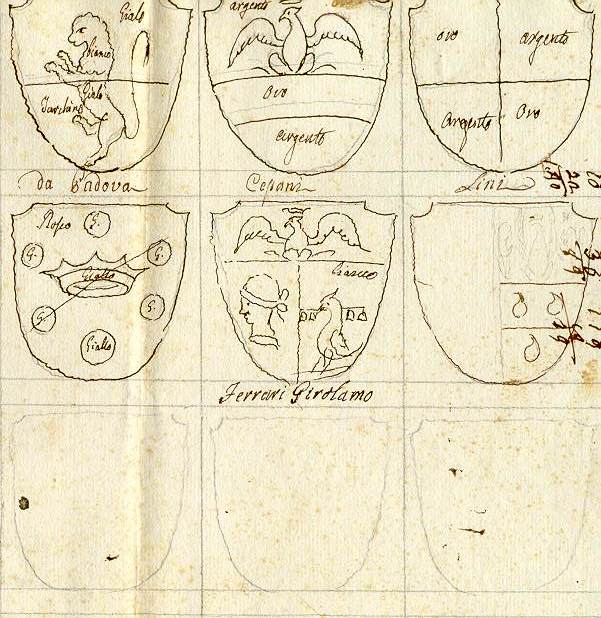 Gialo
bianco
Gialo
Turchino
argento
Oro
argento
oro
argento
Argento
Oro
da Padova
Cepani
Lini
Rosso
G.
G.
G.
G.
G.
Giallo
Giallo
Ferrari Girolamo